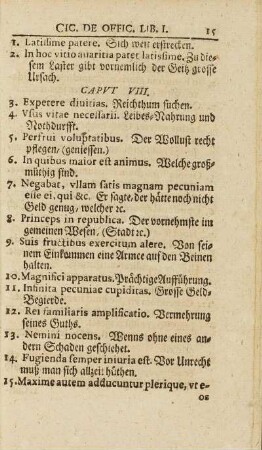 CIC. DE OFFIC. LIB. I. 15
1. Latissime patere. Sich weit erstrecken.
2. In hoc vitio avaritia patet latissime. Zu die-
sem Laster gibt vornemlich der Geitz grosse
Ursach.
CAPVT VIII.
3. Expetere divitias. Reichthum suchen.
4. Vsus vitae necessarii. Leibes-Nahrung und
Nothdurfft.
5. Perfrui voluptatibus. Der Wollust recht
pflegen, (geniessen.)
6. In quibus maior est animus. Welche groß-
müthig sind.
7. Negabat, vllam satis magnam pecuniam
esse ei, qui &c. Er sagte, der hätte noch nicht
Geld genug, welcher ꝛc.
8. Princeps in republica. Der vornehmste im
gemeinen Wesen, (Stadt ꝛc.)
9. Suis fructibus exercitum alere. Von sei-
nem Einkommen eine Armee auf den Beinen
halten.
10. Magnifici apparatus. Prächtige Aufführung.
11. Infinita pecuniae cupiditas. Grosse Geld-
Begierde.
12. Rei familiaris amplificatio. Vermehrung
seines Guths.
13. Nemini nocens. Wenns ohne eines an-
dern Schaden geschiehet.
14. Fugienda semper iniuria est. Vor Unrecht
muß man sich allzeit hüthen.
15. Maxime autem adducuntur plerique, vt e-
os